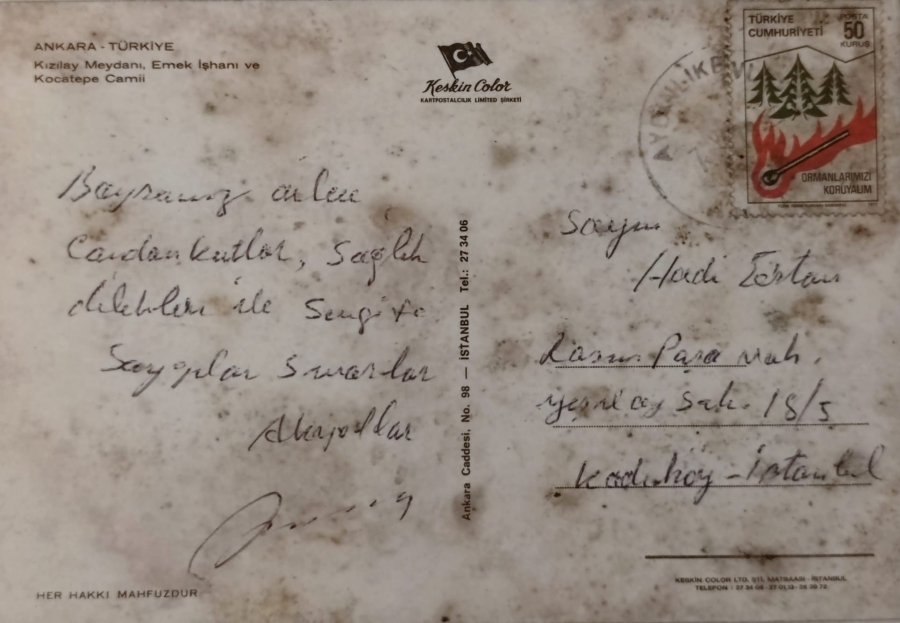 ANKARA - TÜRKİYE
Kızılay Meydanı, Emek İşhanı ve
Kocatepe Camii
Keskin Color
KARTPOSTALCILIK LIMITED ŞİRKETİ
TÜRKİYE
CUMHURİYETİ
POSTA
50
KURUŞ
ORMANLARIMIZI
KORUYALIM
Bayramınız
Candan kutlar, Sağlık
dilekleri ile Sevgi ve
Saygılar Sunarlar
Ankara Caddesi, No. 98 — İSTANBUL Tel.: 27 34 06
Sayın
Hadi
Paşa Mah.
Yeşilay Sok. 18/5
Kadıköy - İstanbul
HER HAKKI MAHFUZDUR
KESKİN COLOR LTD. ŞTİ. MATBAASI - İSTANBUL